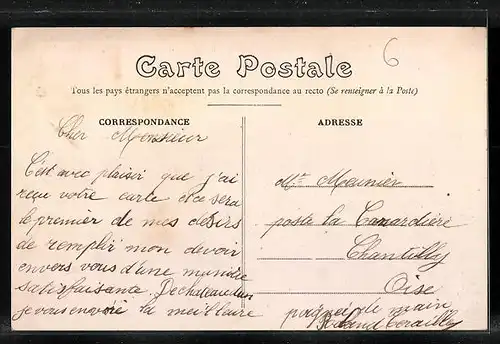 6
Carte Postale
Tous les pays étrangers n'acceptent pas la correspondance au recto (Se renseigner à la Poste)
CORRESPONDANCE
ADRESSE
Cher Monsieur
C'est avec plaisir que j'ai
reçu votre carte et ce sera
le premier de mes désirs
de remplir mon devoir
envers vous d'une manière
satisfaisante. De chateaudun
je vous envoie la meilleure
poignée de main
Mr Meunier
poste la Canardière
Chantilly
Oise